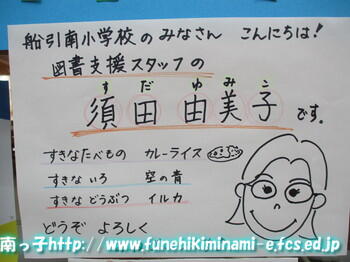 船引南小学校のみなさん こんにちは!
図書支援スタッフの
すだ ゆみこ
須田 由美子です。
すきなたべもの カレーライス
すきないろ 空の青
すきなどうぶつ イルカ
どうぞ よろしく
南っ子http://www.funehikiminami-e.fcs.ed.jp